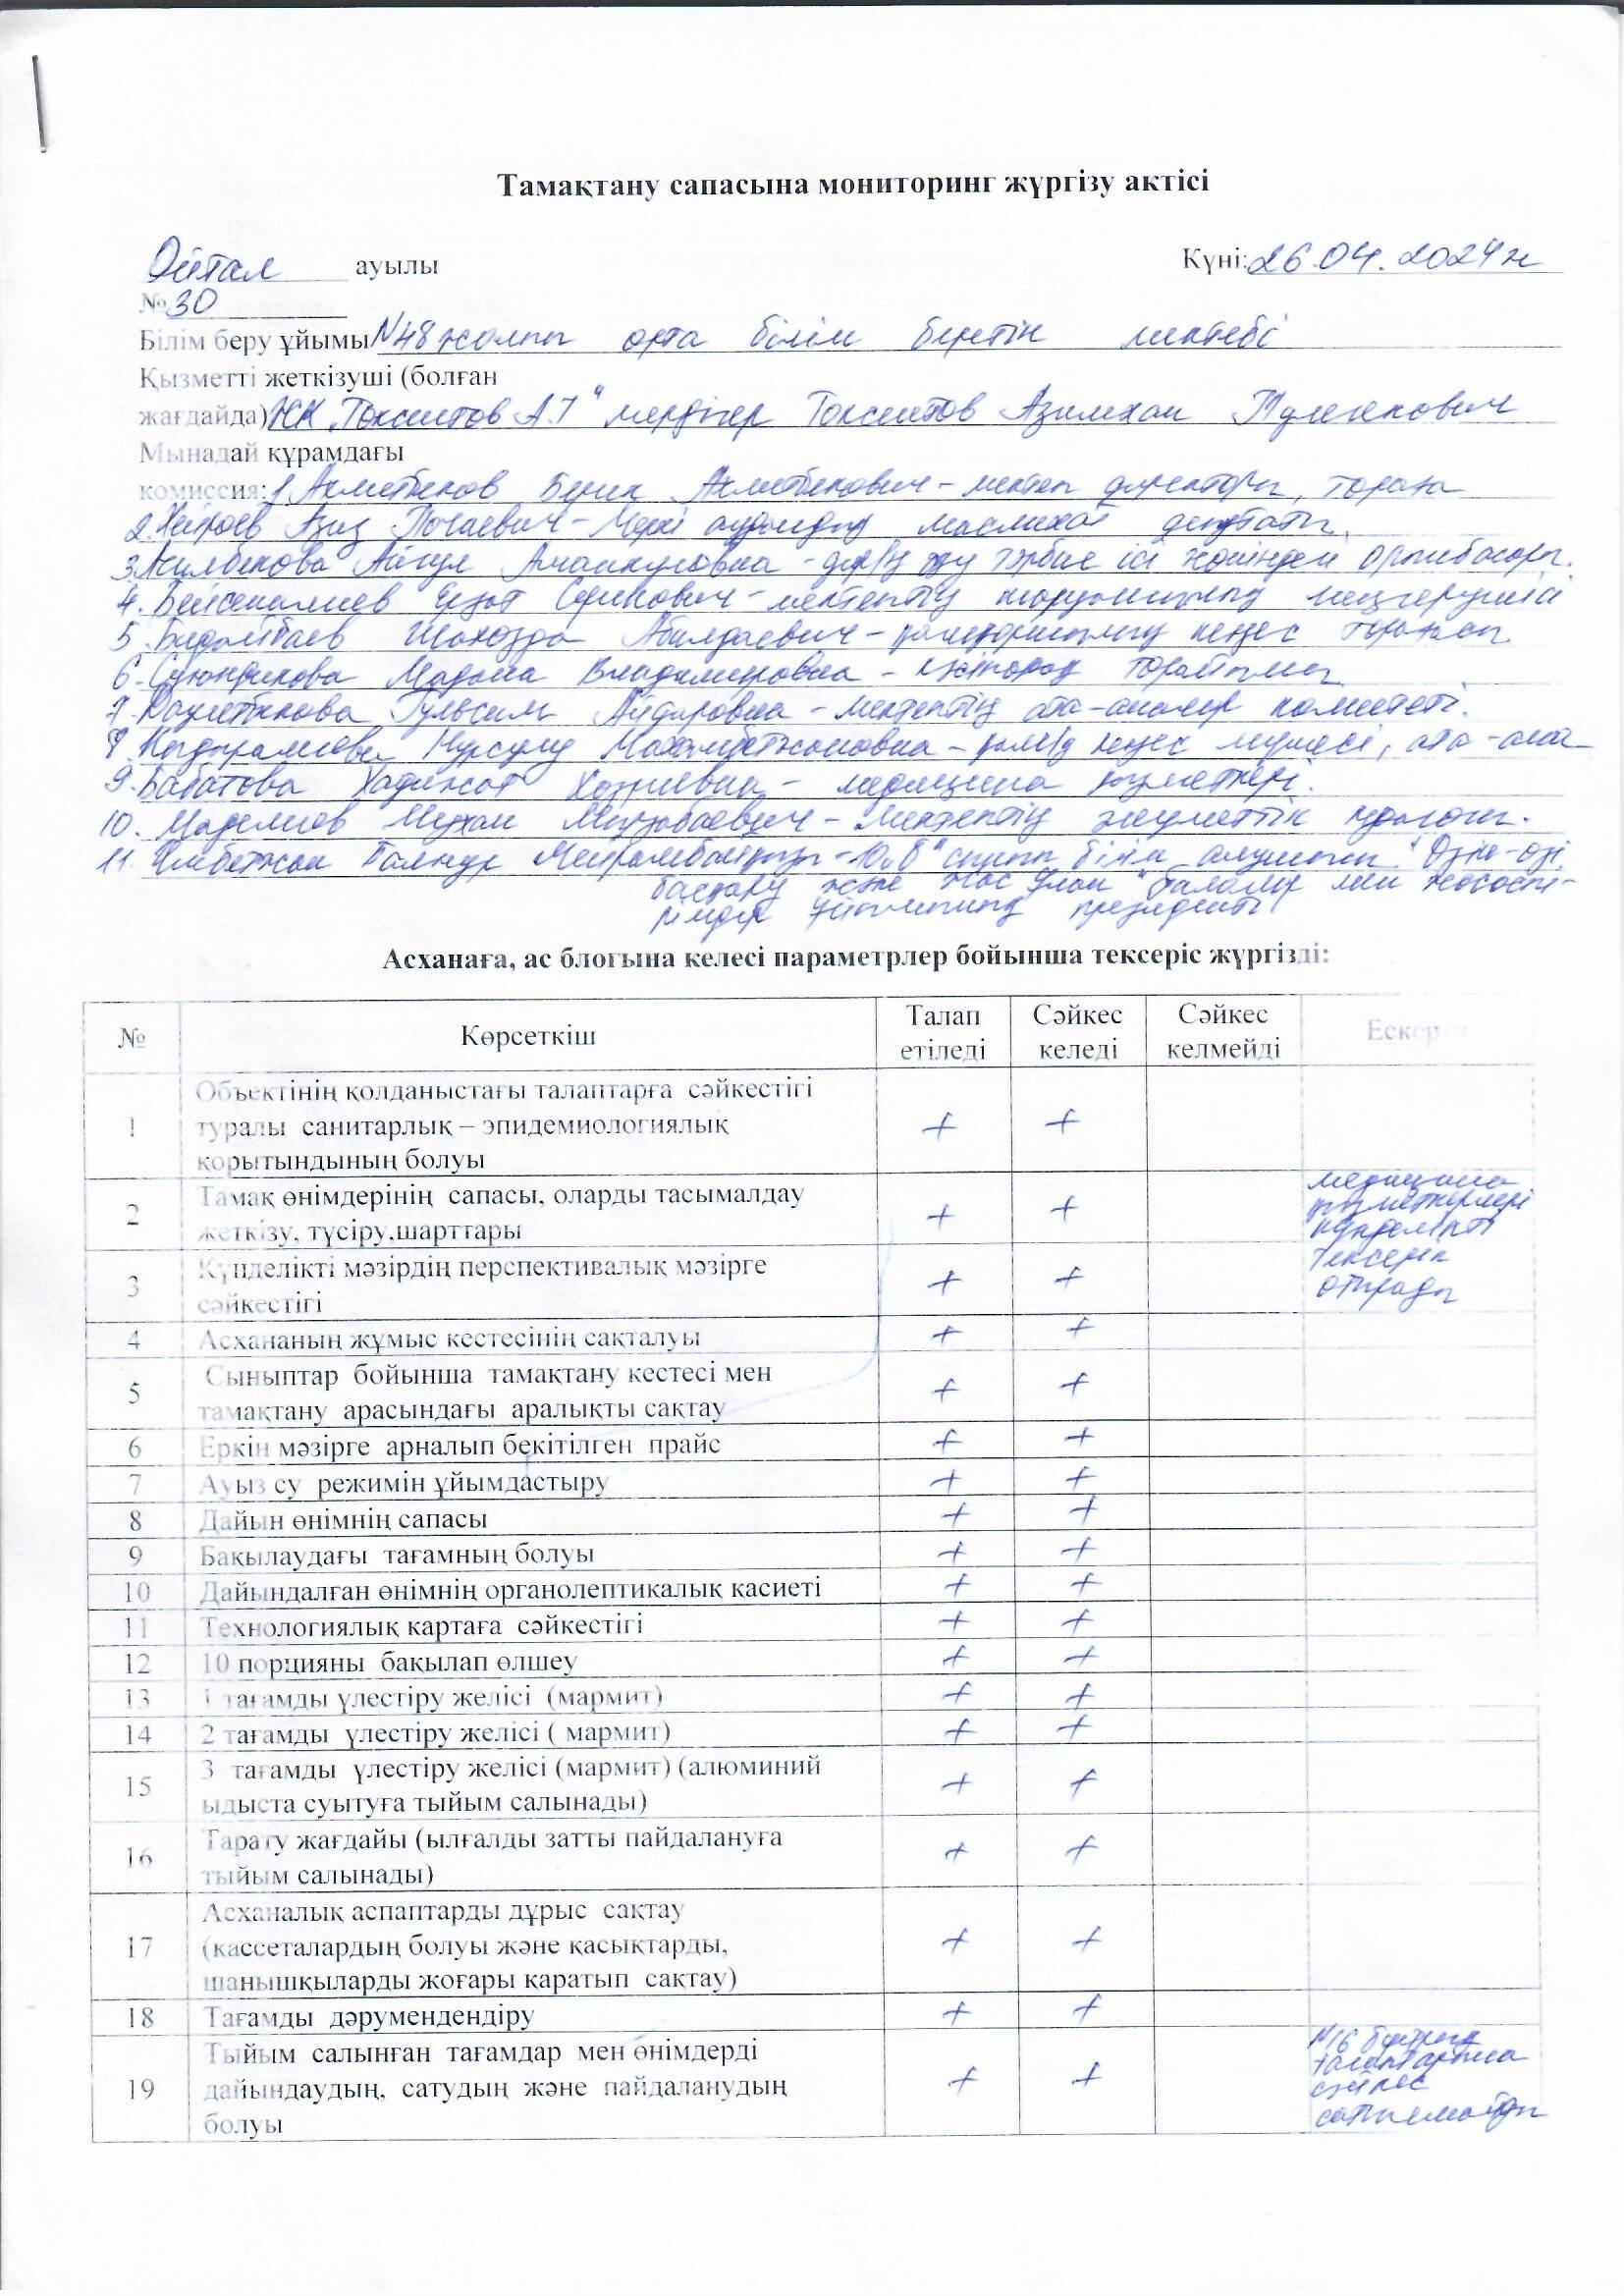 Тамақтану сапасына мониторинг жүргізу актісі
Ойтал ауылы Күні: 26.04.2024ж
№ 30
Білім беру ұйымы N48 жалпы орта білім беретін мектебі
Қызметті жеткізуші (болған
жағдайда) ЖК "Токсеитов А.Т" мердігер Токсеитов Азимхан
Мынадай құрамдағы
комиссия: 1 Ахметбеков Берик Ахметбекович - мектеп директоры, төраға
2. Азиз - Меркі аудандық маслихат депутаты.
3. Айгул Аманкуловна - дир/ң оқу тәрбие ісі жөніндегі орынбасары.
4. Бейсеналиев - мектептің шаруашылық меңгерушісі
5. Абилдаевич - қамқоршылық кеңес төрағасы
6. Мадина Владимировна - кәсіподақ төрайымы
7. Гульсим Айдаровна - мектептің ата-аналар комитеті.
8. Нурсулу - қам/қ кеңес мүшесі, ата-ана
9. Бабатова Хадижат - медицина қызметкері.
10. - мектептің әлеуметтік педагогы.
11. - 10 "б" сынып білім алушысы "Өзін-өзі
басқару және Жас Ұлан" балалар мен жасөспі-
рімдер ұйымының президенті
Асханаға, ас блогына келесі параметрлер бойынша тексеріс жүргізді:
№ Көрсеткіш Талап етіледі Сәйкес келеді Сәйкес келмейді
1 Объектінің қолданыстағы талаптарға сәйкестігі
туралы санитарлық – эпидемиологиялық + +
қорытындының болуы
2 Тамақ өнімдерінің сапасы, оларды тасымалдау
жеткізу, түсіру,шарттары + + медицина қызметкерлері күнделікті
3 Күнделікті мәзірдің перспективалық мәзірге
сәйкестігі + + тексеріп отырады
4 Асхананың жұмыс кестесінің сақталуы + +
5 Сыныптар бойынша тамақтану кестесі мен
тамақтану арасындағы аралықты сақтау + +
6 Еркін мәзірге арналып бекітілген прайс + +
7 Ауыз су режимін ұйымдастыру + +
8 Дайын өнімнің сапасы + +
9 Бақылаудағы тағамның болуы + +
10 Дайындалған өнімнің органолептикалық қасиеті + +
11 Технологиялық картаға сәйкестігі + +
12 10 порцияны бақылап өлшеу + +
13 1 тағамды үлестіру желісі (мармит) + +
14 2 тағамды үлестіру желісі ( мармит) + +
15 3 тағамды үлестіру желісі (мармит) (алюминий
ыдыста суытуға тыйым салынады) + +
16 Тарату жағдайы (ылғалды затты пайдалануға
тыйым салынады) + +
17 Асханалық аспаптарды дұрыс сақтау
(кассеталардың болуы және қасықтарды, + +
шанышқыларды жоғары қаратып сақтау)
18 Тағамды дәрумендендіру + +
19 Тыйым салынған тағамдар мен өнімдерді
дайындаудың, сатудың және пайдаланудың + +
болуы
N16 бұйрық
талаптарына
сәйкес
сатылмайды